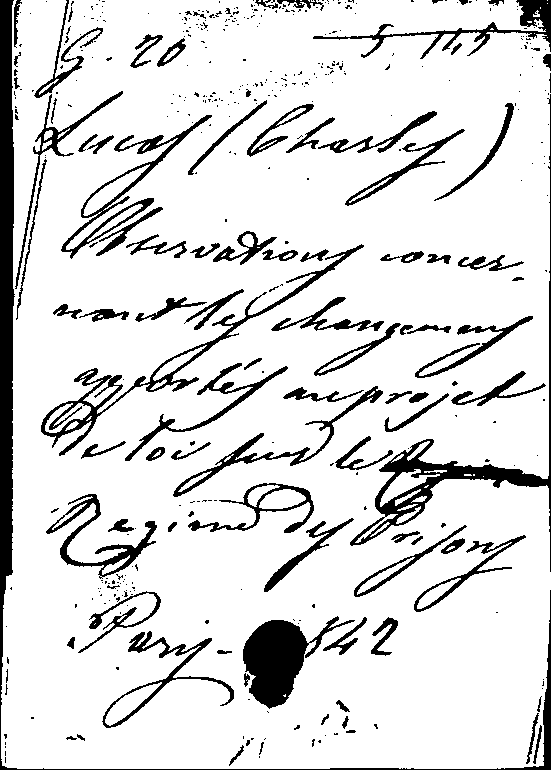 G. 20 5. 145
Lucas (Charles)
Observations concer-
nant les changemens
apportés au projet
de loi sur le
Regime des Prisons
Paris - 1842